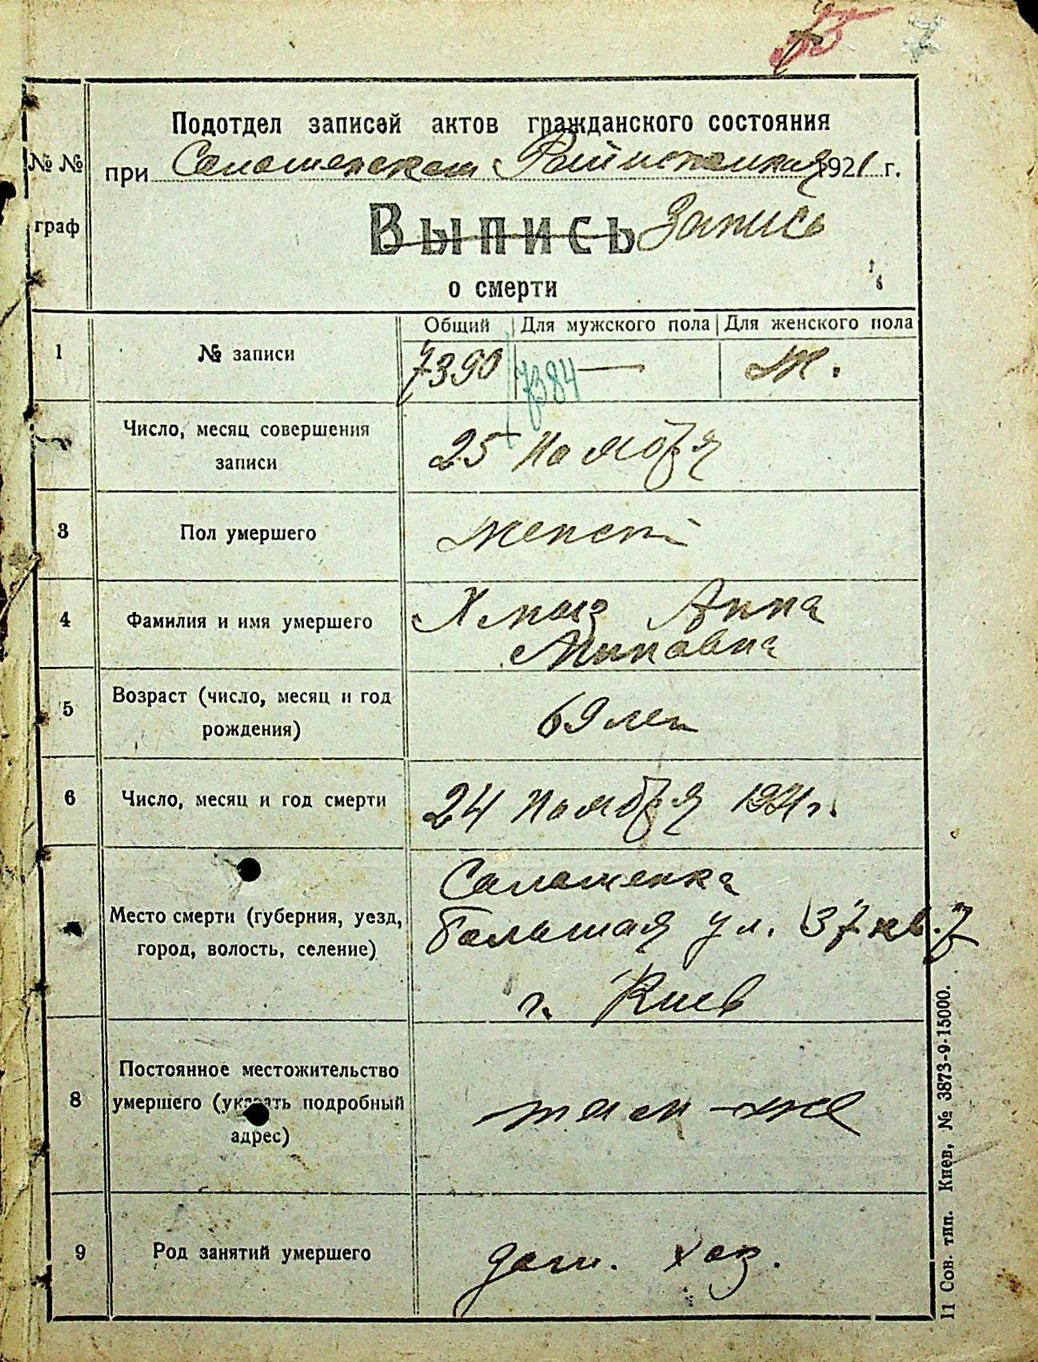 7
Подотдел записей актов гражданского состояния
№ № при Соломенском Райисполкоме 1921 г.
граф Выпись Запись
о смерти
Общий Для мужского пола Для женского пола
1 № записи 7390 7384 — Ж.
Число, месяц совершения
записи 25 Ноября
3 Пол умершего женск
4 Фамилия и имя умершего Хмыз Анна
Миновна
5 Возраст (число, месяц и год
рождения) 69 лет
6 Число, месяц и год смерти 24 Ноября 1921 г.
Соломенка
Место смерти (губерния, уезд, Большая ул. 37 кв. 7
город, волость, селение)
г. Киев
Постоянное местожительство
8 умершего (указать подробный там-же
адрес)
9 Род занятий умершего дом. хоз.
11 Сов. тип. Киев, № 3873-9-15000.